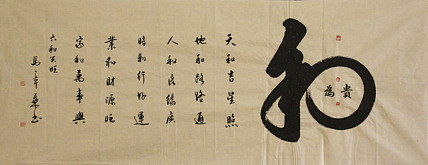 和
為
貴
天和吉星照
地和路路通
人和良緣廣
時和行好運
業和財源旺
家和萬事興
六和旺
馬書